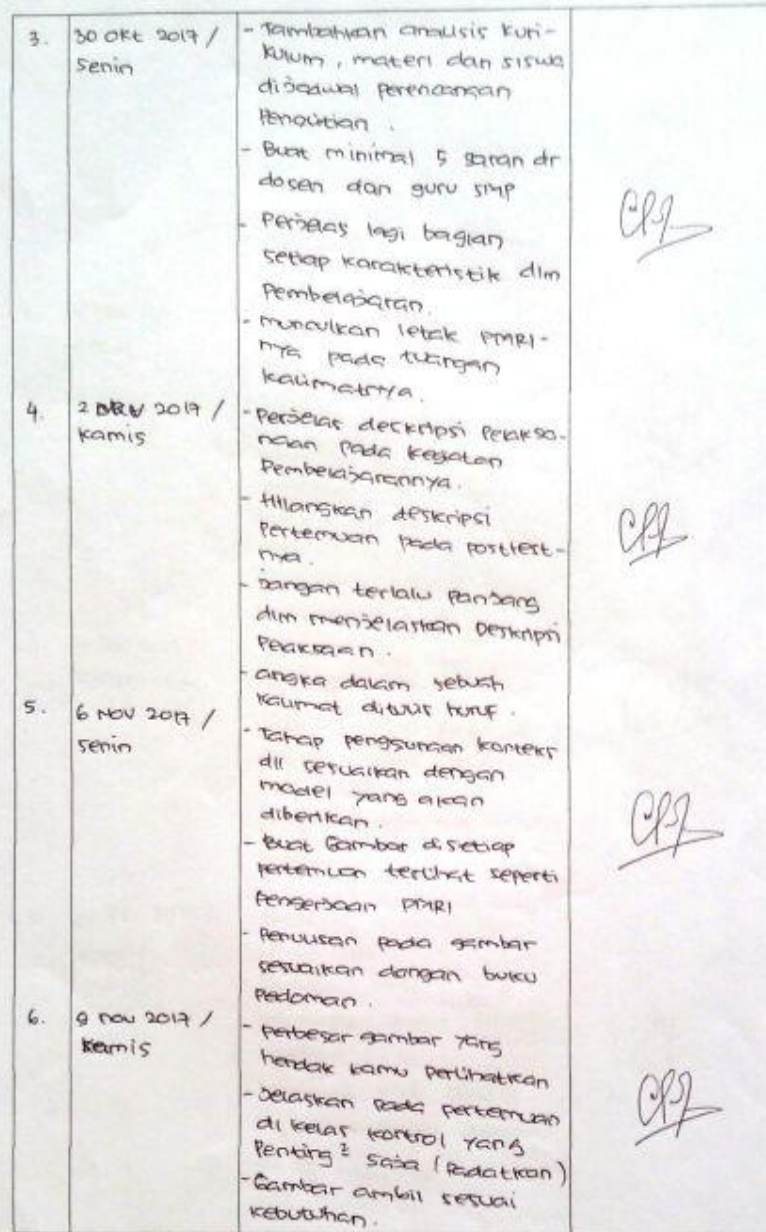 3. 30 Okt 2017 / - Tambahkan analisis kuri-
Senin kulum, materi dan siswa
dijadwal perencangan
Penelitian .
- Buat minimal 5 saran dr
dosen dan guru SMP
- Perjelas lagi bagian
setiap karakteristik dlm
Pembelajaran.
- munculkan letak PMRI-
nya pada tuangan
kalimatnya.
4. 2 2017 / - Perjelas deskripsi Pelaksa-
Kamis naan pada kegiatan
Pembelajarannya.
- Hilangkan deskripsi
Pertemuan pada posttest-
nya.
- Jangan terlalu panjang
dlm menjelaskan Deskripsi
Peaksaan .
- angka dalam sebuah
kalimat ditulis huruf .
5. 6 Nov 2017 /
Senin - Tahap penggunaan konteks
dll sesuaikan dengan
model yang akan
diberikan .
- Buat Gambar disetiap
pertemuan terlihat seperti
Pengerjaan PMRI
- Penulisan pada gambar
sesuaikan dengan buku
Pedoman .
6. 9 nov 2017 / - perbesar gambar yang
Kamis hendak kamu perlihatkan
- Jelaskan pada pertemuan
di kelas kontrol yang
Penting ² saja (Padatkan)
- Gambar ambil sesuai
kebutuhan.